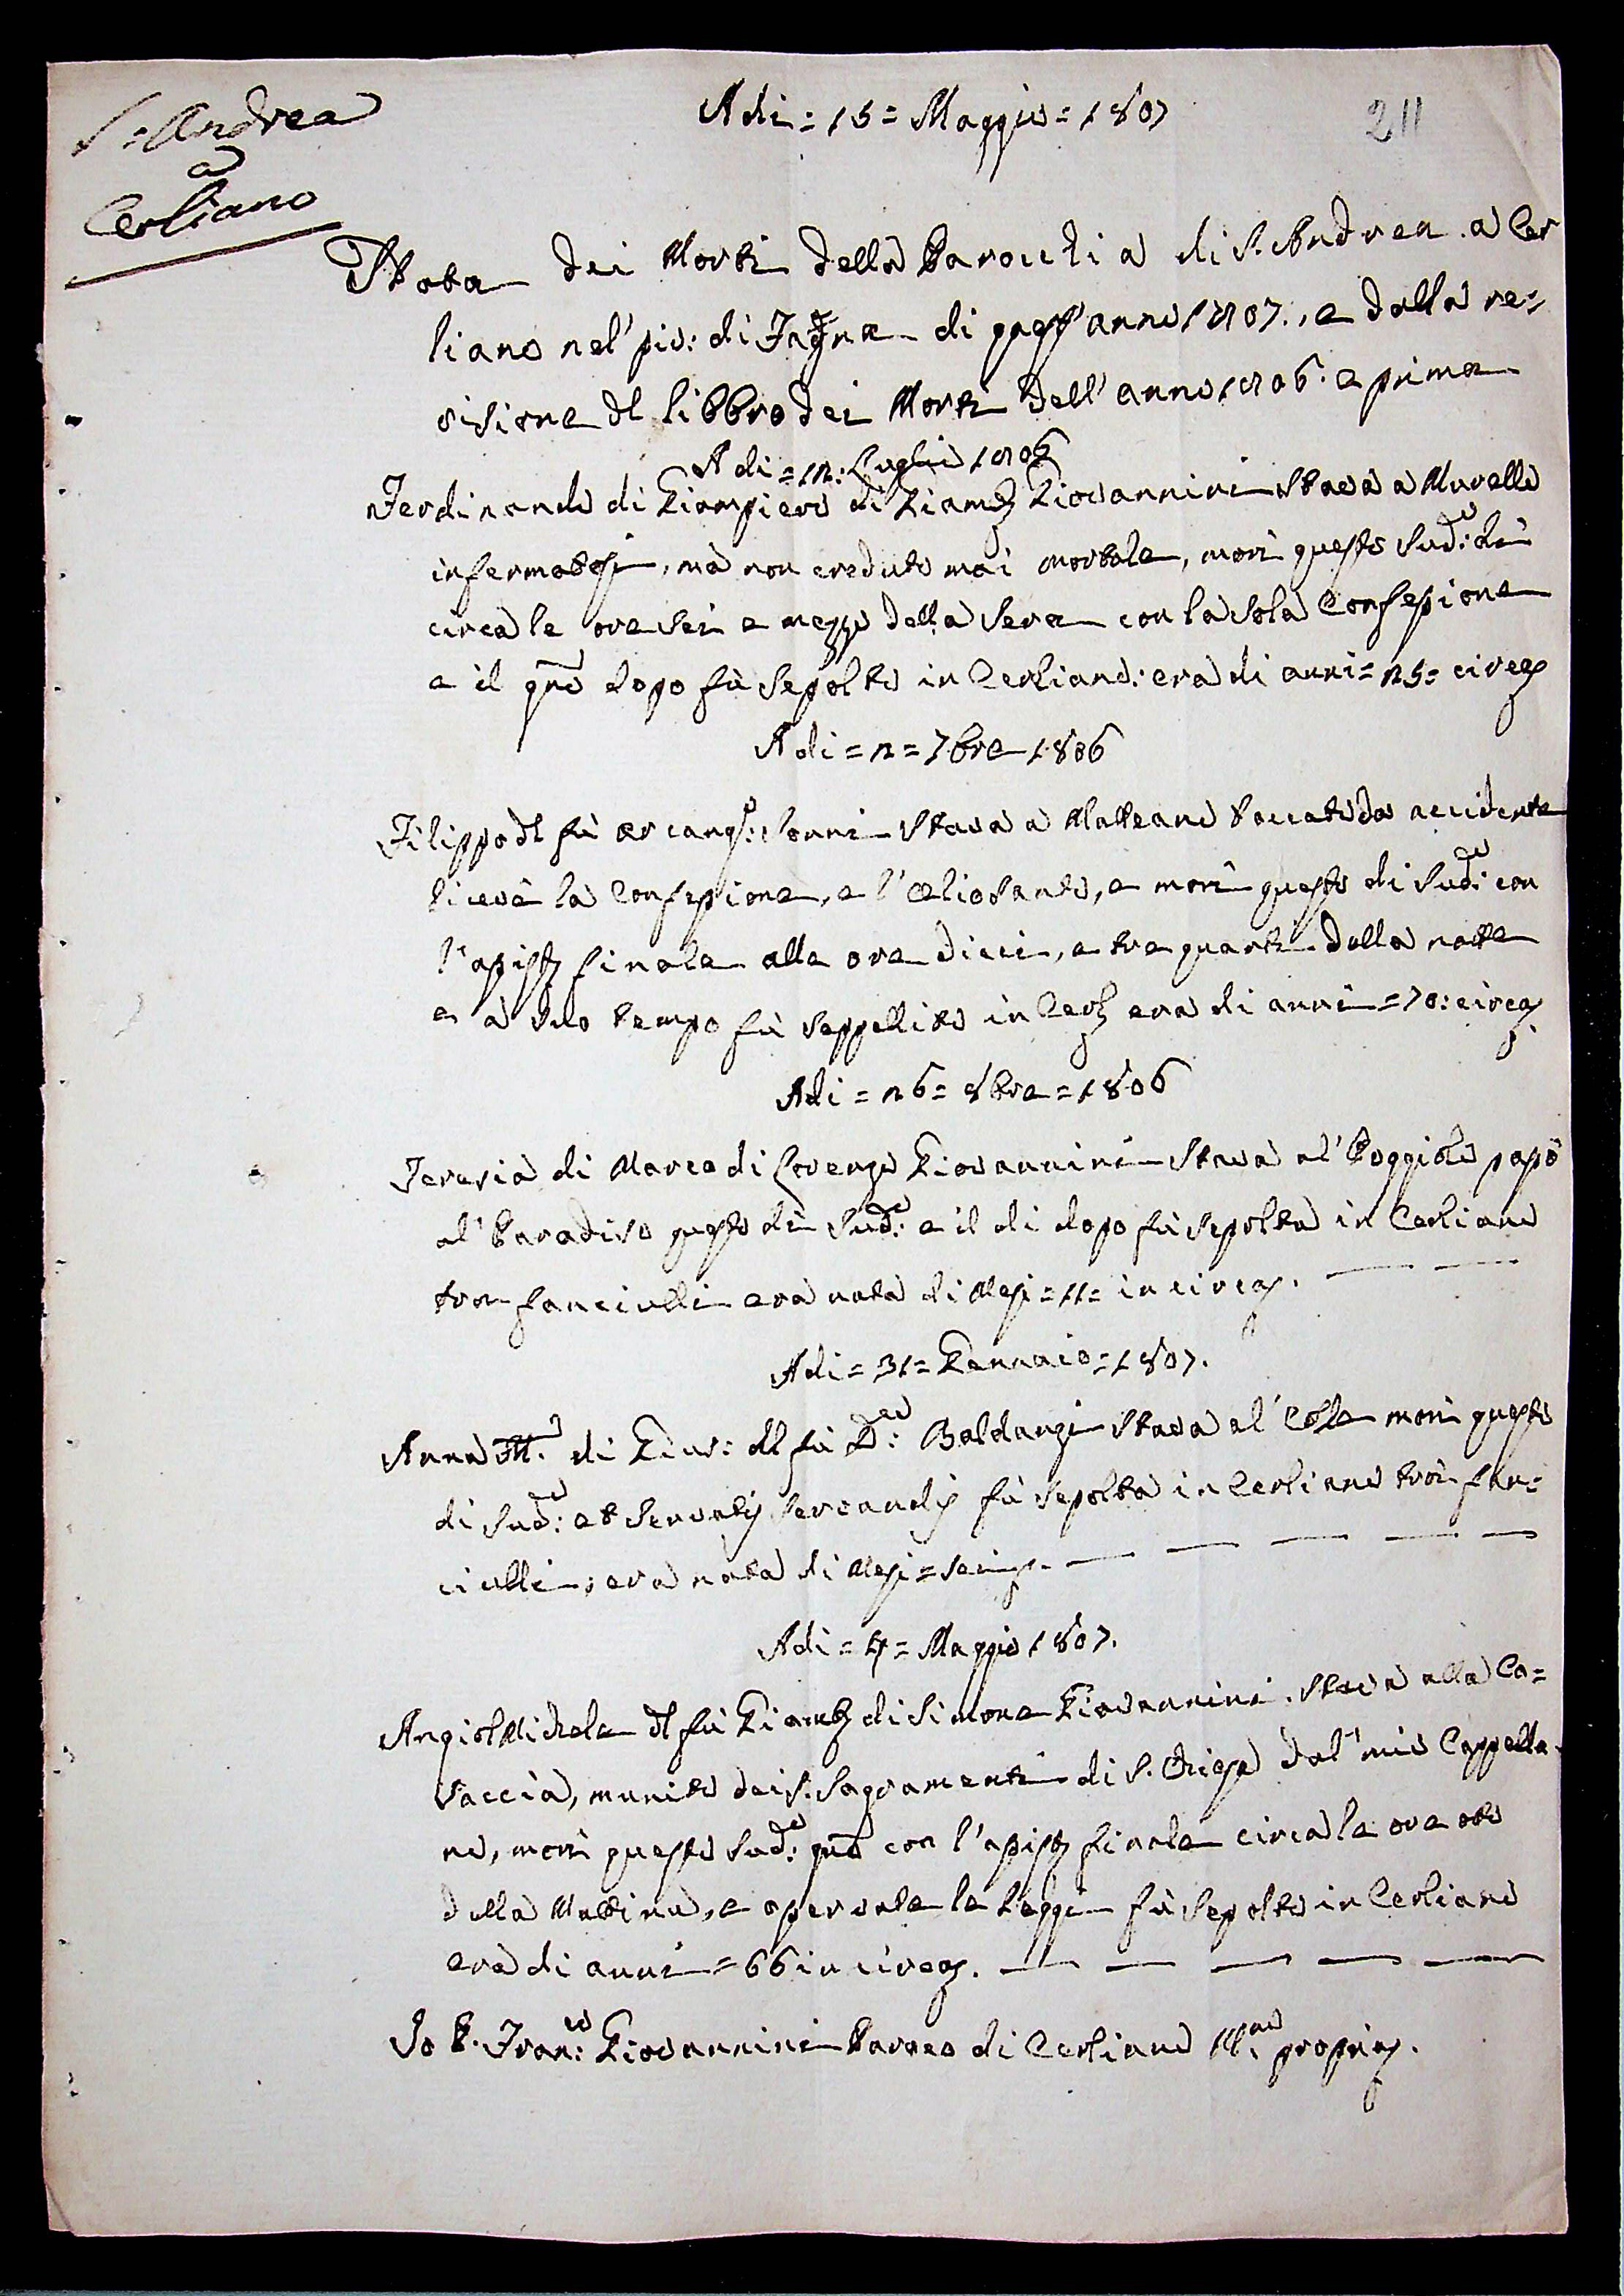 S. Andrea
a
Cerliano
Adi = 15 = Maggio = 1807
211
Nota dei Morti della Parochia di S. Andrea a Cer
liano nel' pio: di quest' anno 1807., e dalla re=
visione dl libbro dei Morti dell' anno 1806. e prima
Adi = 12: Luglio 1806
Ferdinando di Giampiero di Giamb Giovannini stava a Murello
infermatosi, mà non creduto mai mortale, morì questo sud:o dì
circa le ore sei e mezzo della sera con la sola Confessione
e il gno dopo fù sepolto in Cerliano: era di anni = 25 = circa
Adi = 2 = 7bre 1806
Filippo dl fù Arcang:o Sonni stava a Matteano toccato da accidente
ricevè la Confessione, e l'Oliosanto, e morì questo di sud:o con
l'assist finale alle ore dieci, e tre quarti della notte
e à suo tempo fù seppellito in Cerl era di anni = 70: circa
Adi = 26 = 8bre = 1806
Teresia di Marco di Lorenzo Giovannini stava al' Poggiolo passò
al' Paradiso questo dì sud:o e il di dopo fù sepolta in Cerliano
tra fanciulli era nata di Mesi = 11 = in circa.
Adi = 31 = Gennaio = 1807.
Anna M.a di Gius: dl fù D:co Baldanzi stava al' Colle morì questo
di sud:o et servatis servandis fù sepolta in Cerliano trà i fan=
ciulli; era nata di Mesi = sei
Adi = 4 = Maggio 1807.
Angiol Michele dl fù Giamb di Simone Giovannini. stava alla Ca=
saccia, munito dei S. Sagramenti di S. Chiesa dal' mio Cappella
no, morì questo sud:o gno con l'assist finale circa le ore otto
della Mattina, e osservate le Leggi fù sepolto in Cerliano
era di anni = 66 in circa.
Io P. Fran:co Giovannini Parroco di Cerliano M.no propria.